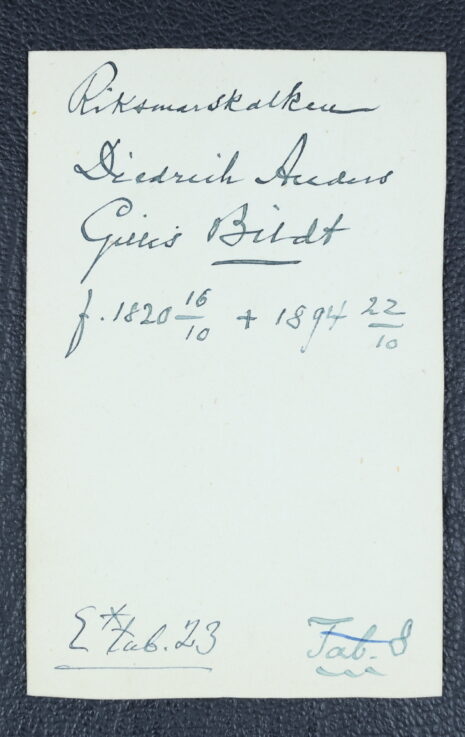 Riksmarskalken
Diedrich Anders
Gillis Bildt
f. 1820 16/10 + 1894 22/10
E* Tab. 23
Tab. 8